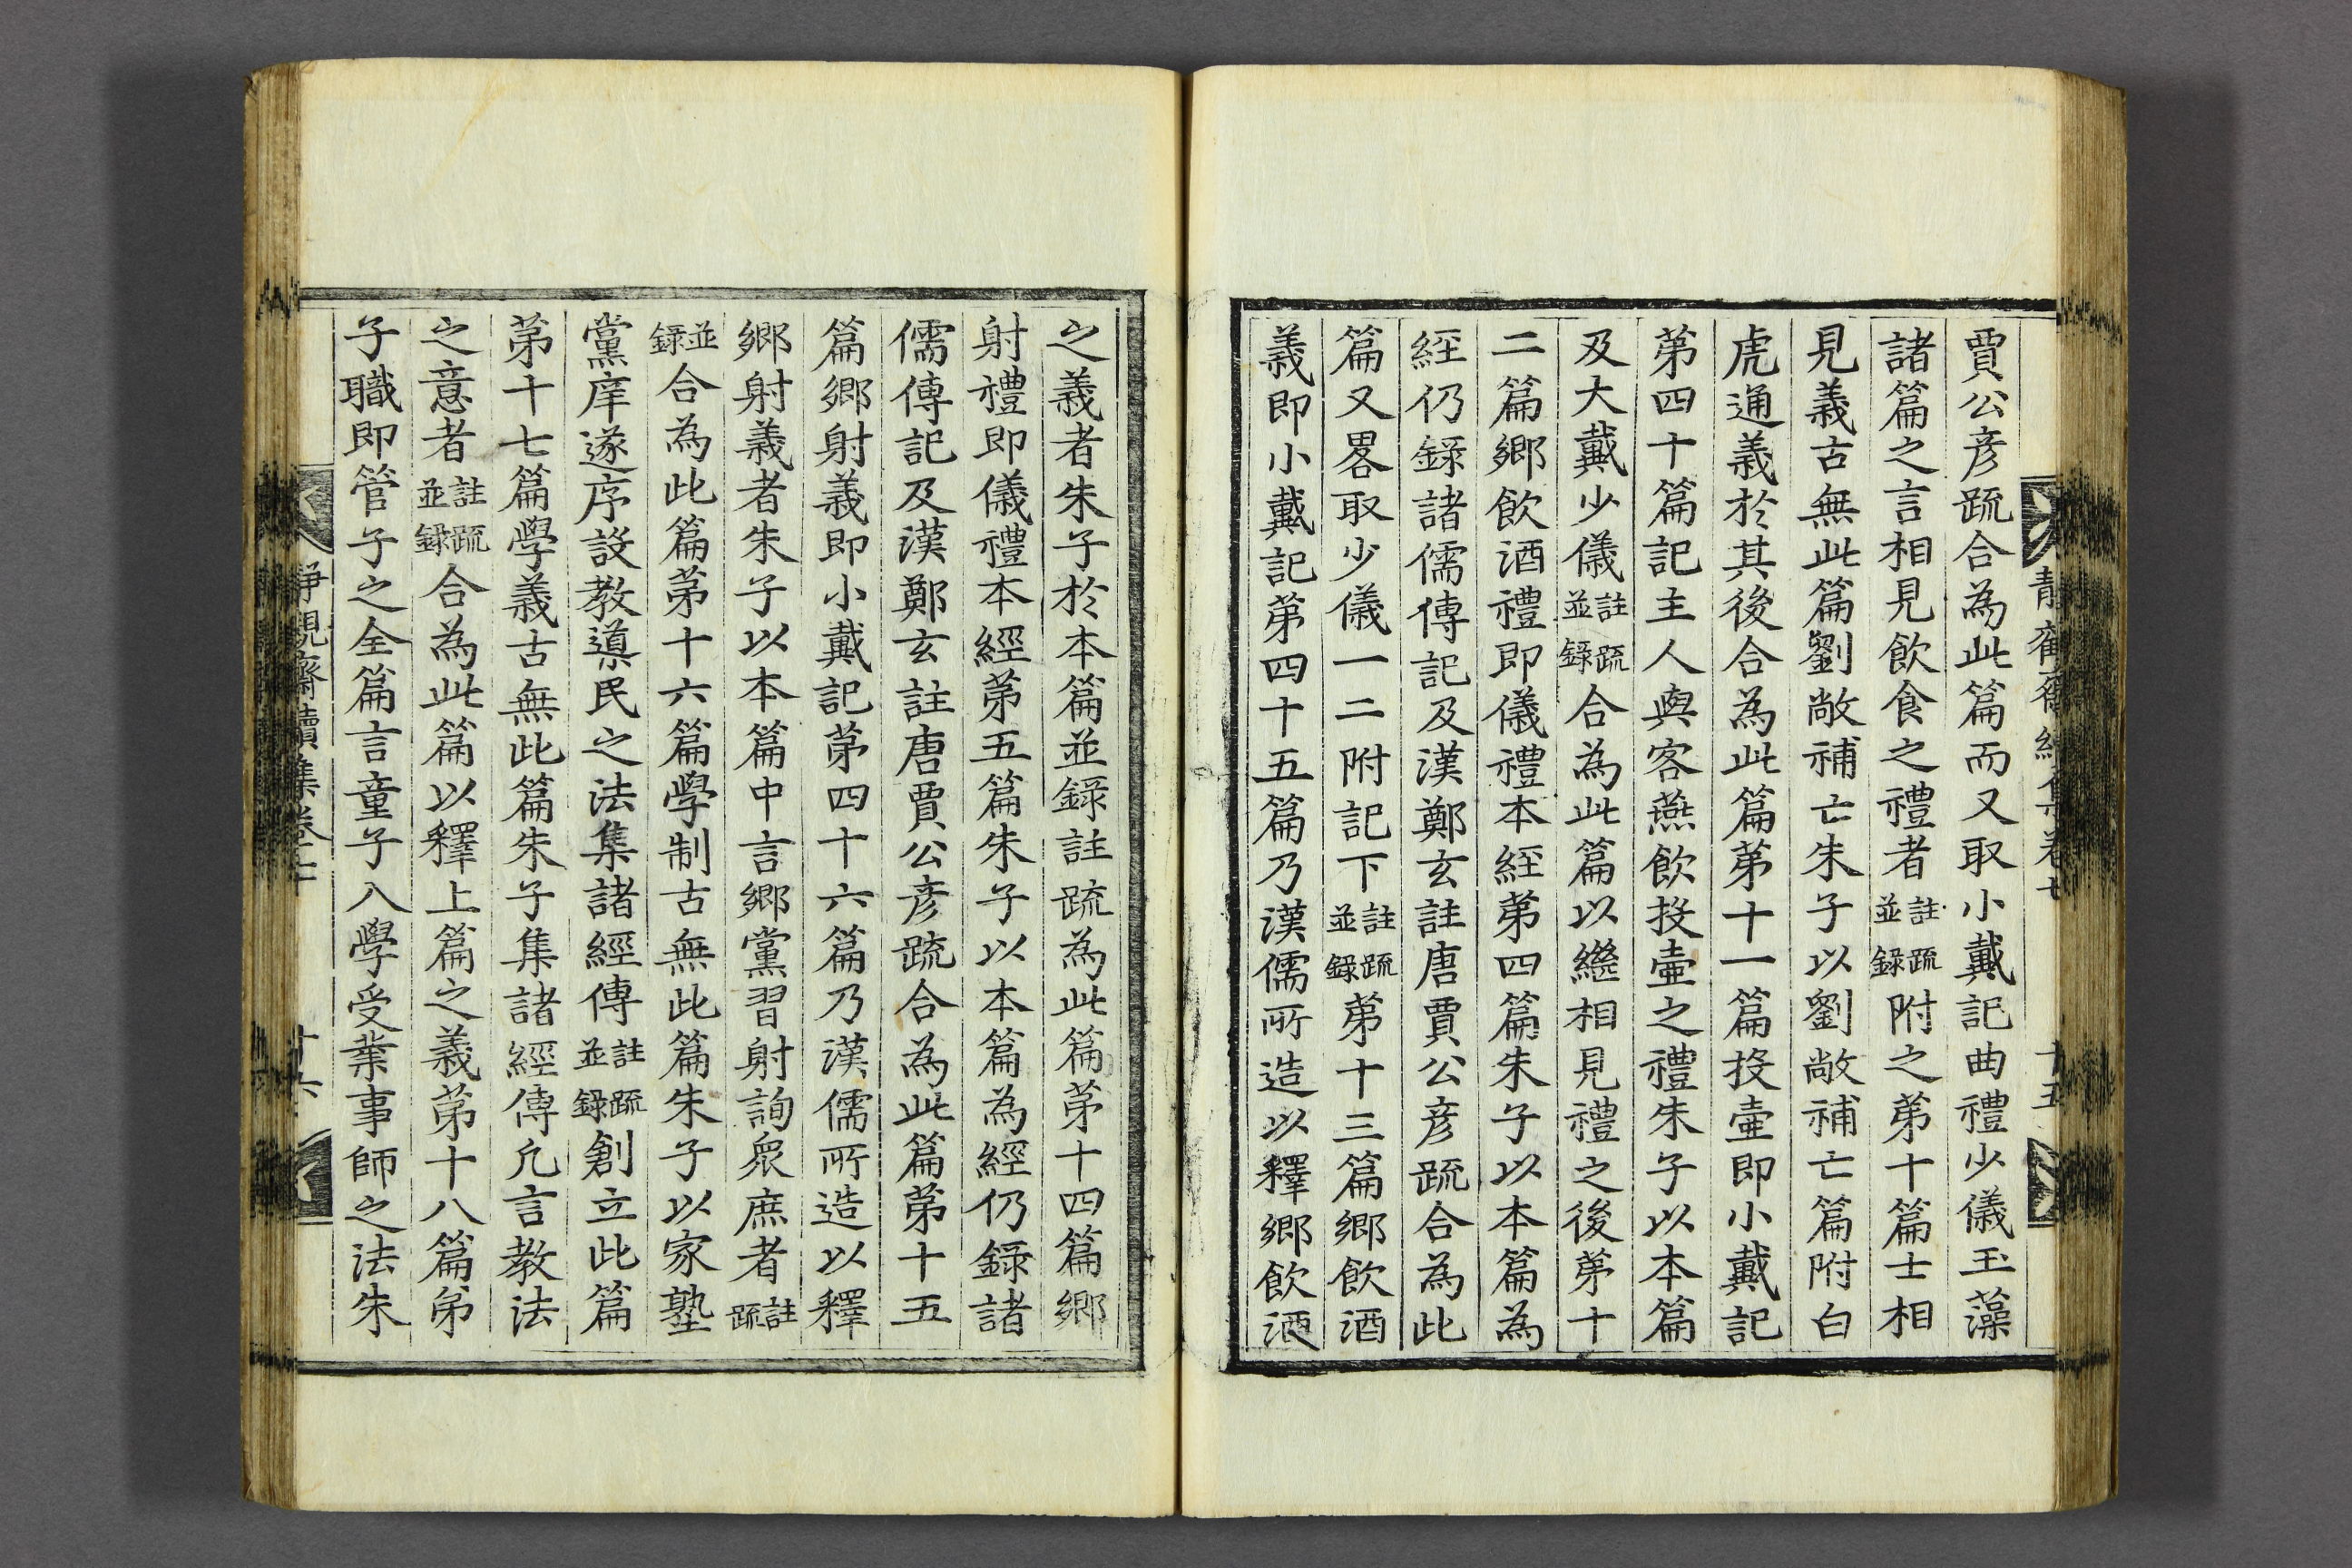 賈公彦疏合為此篇而又取小戴記曲禮少儀玉藻
諸篇之言相見飲食之禮者註疏並錄附之第十篇士相
見義古無此篇劉敞補亡朱子以劉敞補亡篇附白
虎通義於其後合為此篇第十一篇投壷即小戴記
第四十篇記主人與客燕飲投壷之禮朱子以本篇
及大戴少儀註疏並錄合為此篇以繼相見禮之後第十
二篇鄉飲酒禮即儀禮本經第四篇朱子以本篇為
經仍錄諸儒傳記及漢鄭玄註唐賈公彦疏合為此
篇又畧取少儀一二附記下註疏並錄第十三篇鄉飲酒
義即小戴記第四十五篇乃漢儒所造以釋鄉飲酒
之義者朱子於本篇並錄註疏為此篇第十四篇鄉
射禮即儀禮本經第五篇朱子以本篇為經仍錄諸
儒傳記及漢鄭玄註唐賈公彦疏合為此篇第十五
篇鄉射義即小戴記第四十六篇乃漢儒所造以釋
鄉射義者朱子以本篇中言鄉黨習射詢衆庶者註疏
並錄合為此篇第十六篇學制古無此篇朱子以家塾
黨庠遂序設教導民之法集諸經傳註疏並錄創立此篇
第十七篇學義古無此篇朱子集諸經傳凢言教法
之意者註疏並錄合為此篇以釋上篇之義第十八篇弟
子職即管子之全篇言童子入學受業事師之法朱
靜觀齋續集卷七
十六